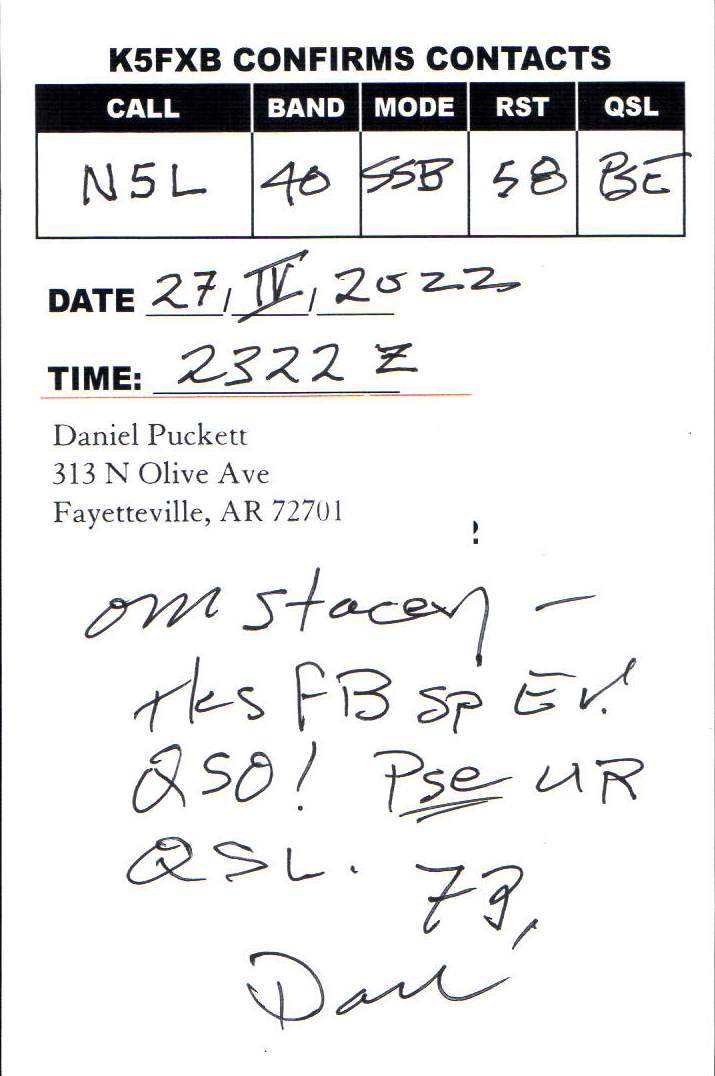 K5FXB CONFIRMS CONTACTS
CALL BAND MODE RST QSL
N5L 40 SSB 58
DATE 27, IV, 2022
TIME: 2322 Z
Daniel Puckett
313 N Olive Ave
Fayetteville, AR 72701
om Stacey –
tks FB sp Ev.
QSO! Pse UR
QSL. 73,
Dan